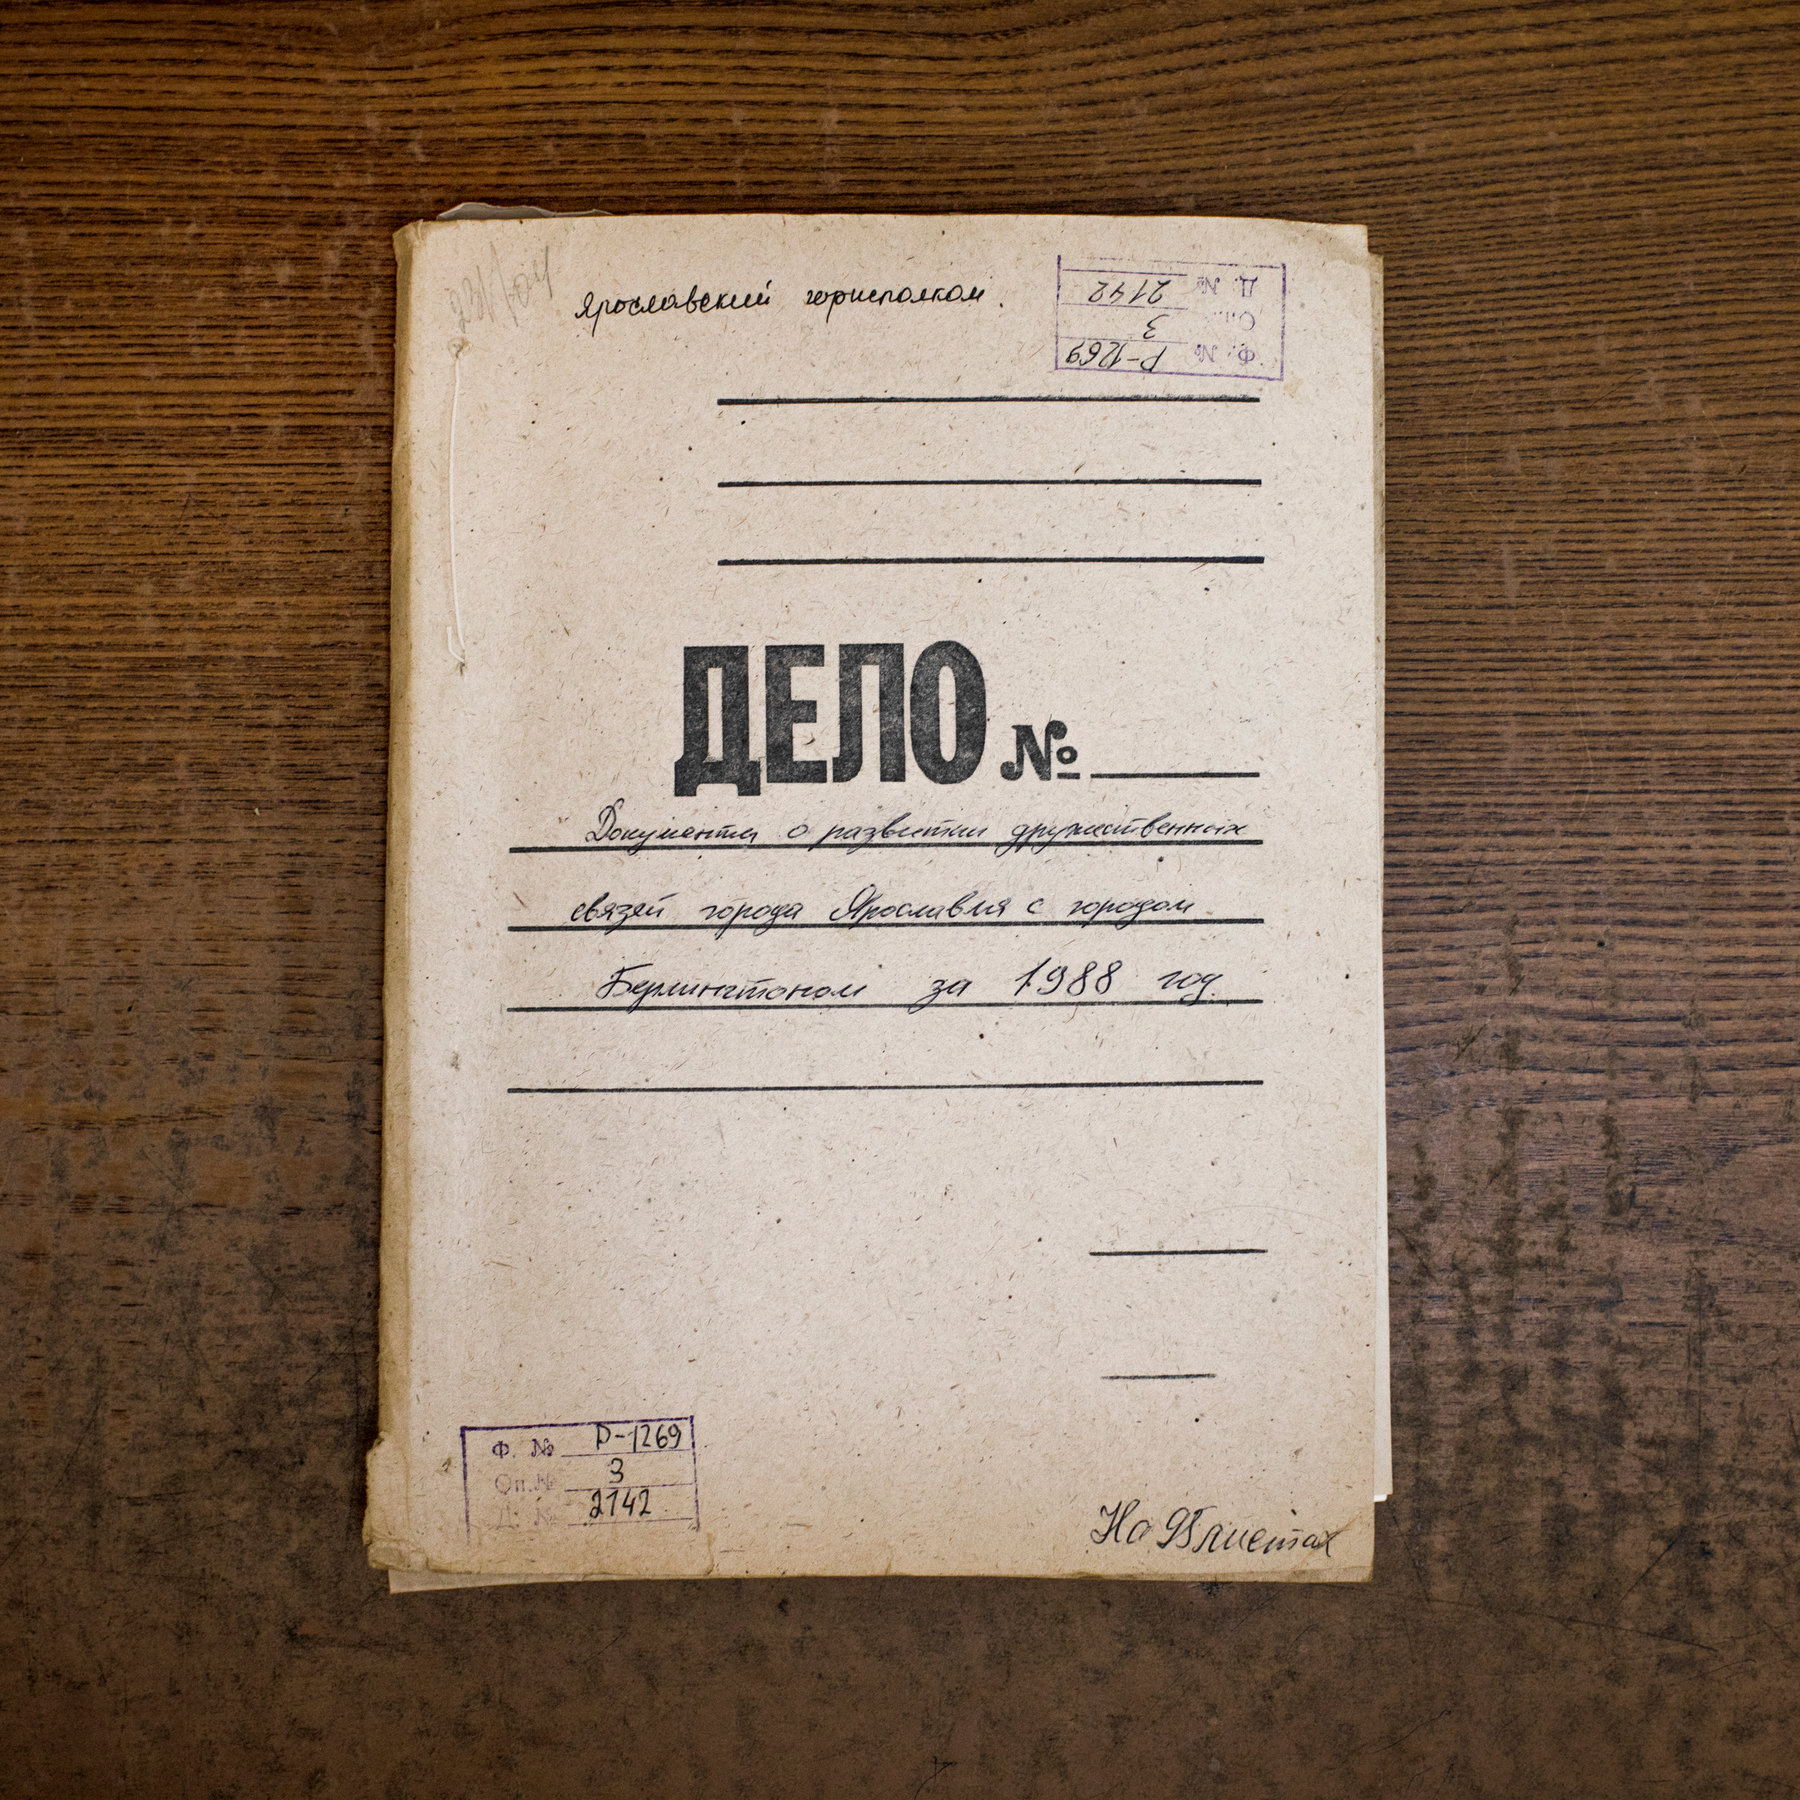 Ярославский горисполком.
Д. № 2142
Оп. 3
Ф. № Р-1269
ДЕЛО №
Документы о развитии дружественных
связей города Ярославля с городом
Берлингтоном за 1988 год.
Ф. № Р-1269
Оп. № 3
Д. № 2142
На листах